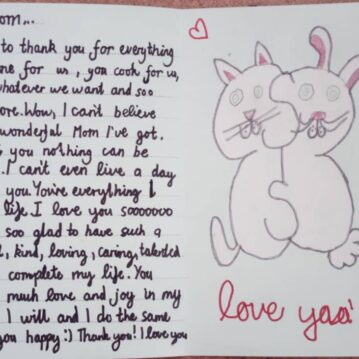 om...
to thank you for everything
ne for us, you cook for us,
whatever we want and soo
ore. Wow, I can't believe
wonderful Mom I've got.
you nothing can be
. I can't even live a day
you. You're everything I
life. I love you soooooo
soo glad to have such a
, kind, loving, caring, talented
complete my life. You
much love and joy in my
I will and I do the same
you happy :) Thank you! I love you
love yaa!